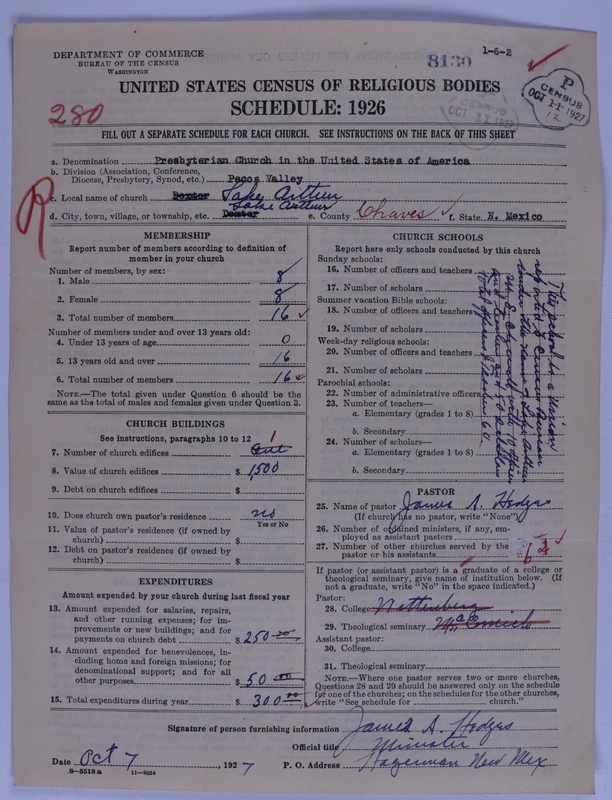 DEPARTMENT OF COMMERCE
BUREAU OF THE CENSUS
WASHINGTON
8130
1-6-2
P
CENSUS
OCT 11 1927
UNITED STATES CENSUS OF RELIGIOUS BODIES
SCHEDULE: 1926
280
FILL OUT A SEPARATE SCHEDULE FOR EACH CHURCH. SEE INSTRUCTIONS ON THE BACK OF THIS SHEET
R
a. Denomination Presbyterian Church in the United States of America
b. Division (Association, Conference,
Diocese, Presbytery, Synod, etc.) Pecos Valley
c. Local name of church Dexter Lake Arthur
d. City, town, village, or township, etc. Dexter Lake Arthur e. County Chaves f. State N. Mexico
MEMBERSHIP
Report number of members according to definition of
member in your church
Number of members, by sex:
1. Male 8
2. Female 8
3. Total number of members 16
Number of members under and over 13 years old:
4. Under 13 years of age 0
5. 13 years old and over 16
6. Total number of members 16
NOTE.—The total given under Question 6 should be
same as the total of males and females given under Question 3.
CHURCH BUILDINGS
See instructions, paragraphs 10 to 12
7. Number of church edifices One 1
8. Value of church edifices $ 1,500
9. Debt on church edifices $
10. Does church own pastor's residence no
Yes or No
11. Value of pastor's residence (if owned by
church) $
12. Debt on pastor's residence (if owned by
church) $
EXPENDITURES
Amount expended by your church during last fiscal year
13. Amount expended for salaries, repairs,
and other running expenses; for im-
provements or new buildings; and for
payments on church debt $ 250 00
14. Amount expended for benevolences, in-
cluding home and foreign missions; for
denominational support; and for all
other purposes $ 50 00
15. Total expenditures during year $ 300 00
CHURCH SCHOOLS
Report here only schools conducted by this church
Sunday schools:
16. Number of officers and teachers
17. Number of scholars
Summer vacation Bible schools:
18. Number of officers and teachers
19. Number of scholars
Week-day religious schools:
20. Number of officers and teachers
21. Number of scholars
Parochial schools:
22. Number of administrative officers
23. Number of teachers—
a. Elementary (grades 1 to 8)
b. Secondary
24. Number of scholars—
a. Elementary (grades 1 to 8)
b. Secondary
This school is a union
under the name of Lake Arthur
PASTOR
25. Name of pastor James A. Hedges
(If church has no pastor, write "None")
26. Number of ordained ministers, if any, em-
ployed as assistant pastors
27. Number of other churches served by the
pastor or his assistants
If pastor (or assistant pastor) is a graduate of a college or
theological seminary, give name of institution below. (If
not a graduate, write "No" in the space indicated.)
Pastor:
28. College
29. Theological seminary
Assistant pastor:
30. College
31. Theological seminary
NOTE.—Where one pastor serves two or more churches,
Questions 28 and 29 should be answered only on the schedule
for one of the churches; on the schedules for the other churches,
write "See schedule for church."
Signature of person furnishing information James A. Hedges
Official title Minister
Date Oct 7, 1927 P. O. Address Hagerman New Mex
8-5518 a 11-9024